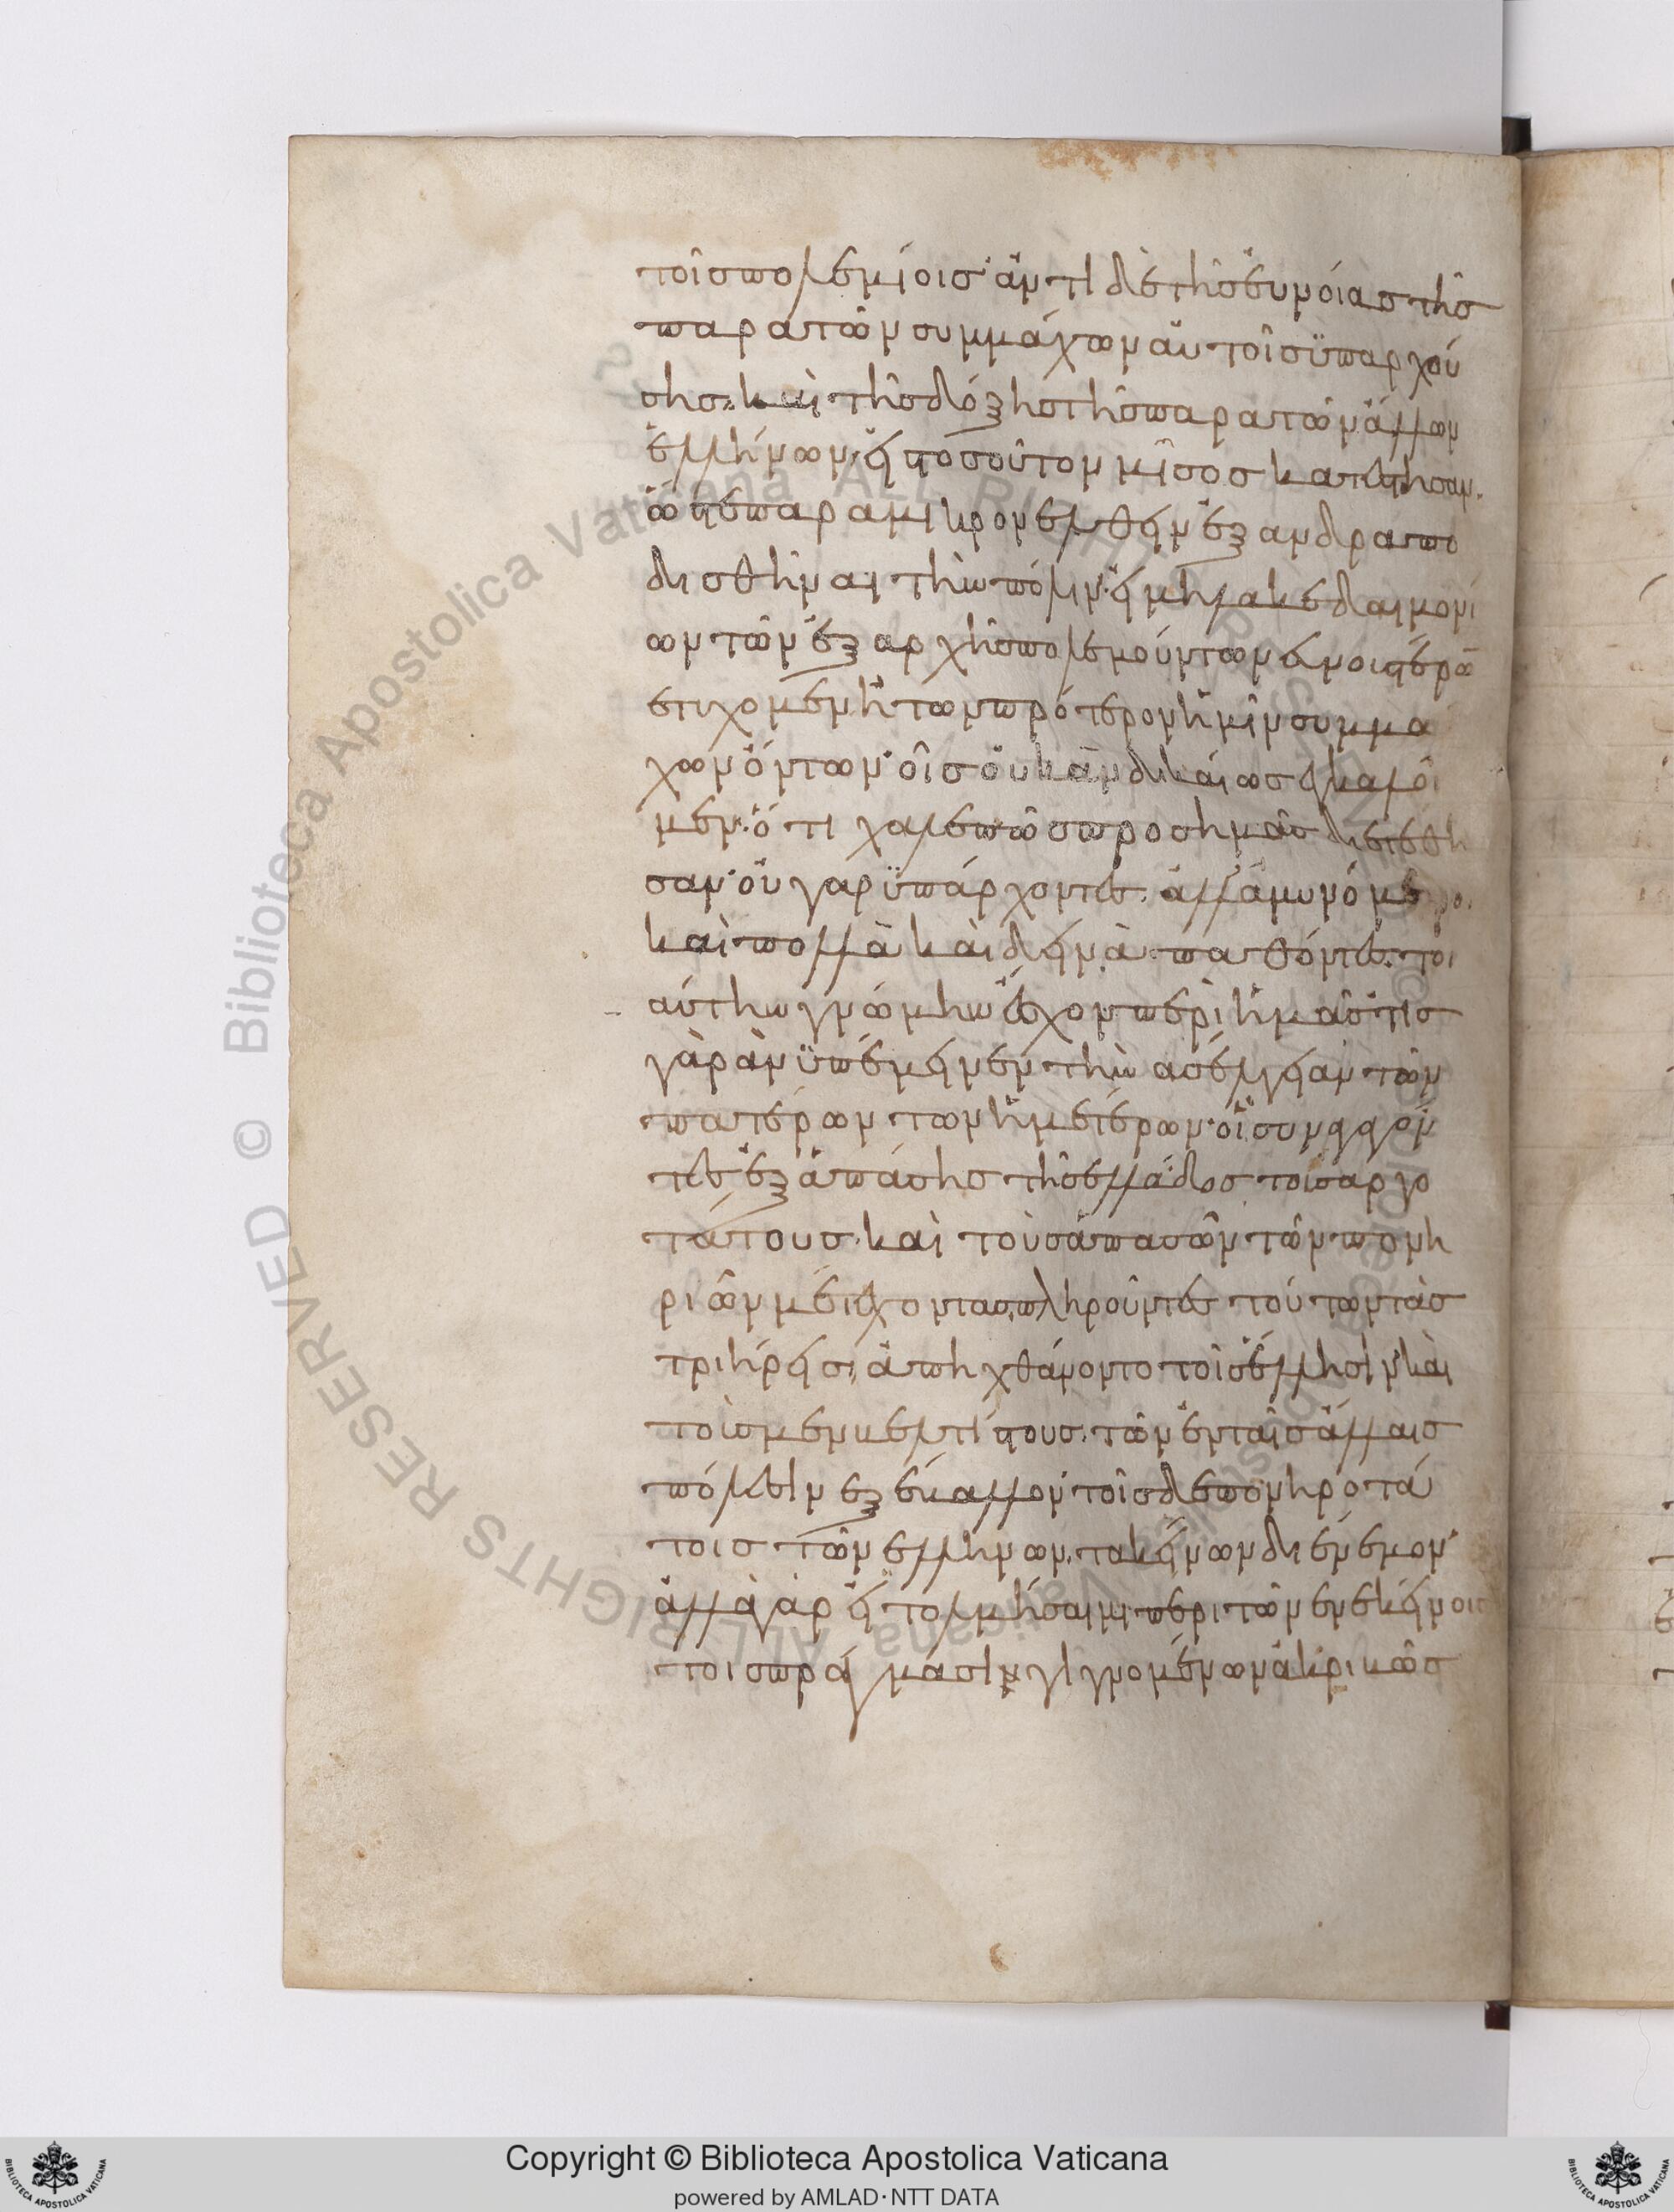 τοῖσ πολεμίοισ· ἀντὶ δὲ τῆσ εὐνοίασ τῆσ
παρα τῶν συμμάχων αὐτοῖσ ὑπαρχού
σησ· καὶ τῆσ δόξησ τῆσ παρα τῶν ἄλλων
ἑλλήνων· εἰσ τοσοῦτον μῖσοσ κατέστησαν·
ὥστε παρα μικρον ελθεῖν ἐξανδραπο
δισθῆναι τὴν πόλιν· εἰ μὴ λακεδαιμονί
ων τῶν ἐξ αρχῆσ πολεμούντων εὐνουστέρω̅
ετύχομεν ἢ των πρότερον ἡμῖν συμμα
χων ὄντων· οἷσ οὐκ ἂν δικαίωσ εγκαλοῖ
μεν· ὅτι χαλεπῶσ προσ ἡμᾶσ διετέθη
σαν· οὐ γαρ ὑπάρχοντεσ· ἀλλ ἀμυνόμενοι
καὶ πολλὰ καὶ δεινὰ παθόντεσ· τοι
αύτην γνώμην ἔσχον περὶ ἡμᾶσ· τίσ
γὰρ ἂν ὑπέμεινεν τὴν ασέλγειαν τῶν
πατέρων των ἡμετέρων· οἳ συναγαγόν
τεσ ἐξ ἁπάσησ τῆσ ελλάδοσ τοὺσ αργο
τάτουσ· καὶ τοὺσ ἁπασῶν τῶν πονη
ριῶν μετέχοντασ· πληροῦντεσ τούτων τὰσ
τριήρεισ· ἀπηχθάνοντο τοῖσ ἕλλησιν· καὶ
τοὺσ μεν βελτίστουσ· τῶν ἐν ταῖσ ἄλλαισ
πόλεσιν εξέβαλλον· τοῖσ δε πονηροτά
τοισ τῶν ελλήνων· τακείνων διένεμον·
ἀλλὰ γὰρ εἰ τολμήσαιμι περι τῶν εν εκείνοισ
τοισ πράγμασιν γιγνομένων ἀκριβῶσ
Copyright © Biblioteca Apostolica Vaticana
powered by AMLAD·NTT DATA